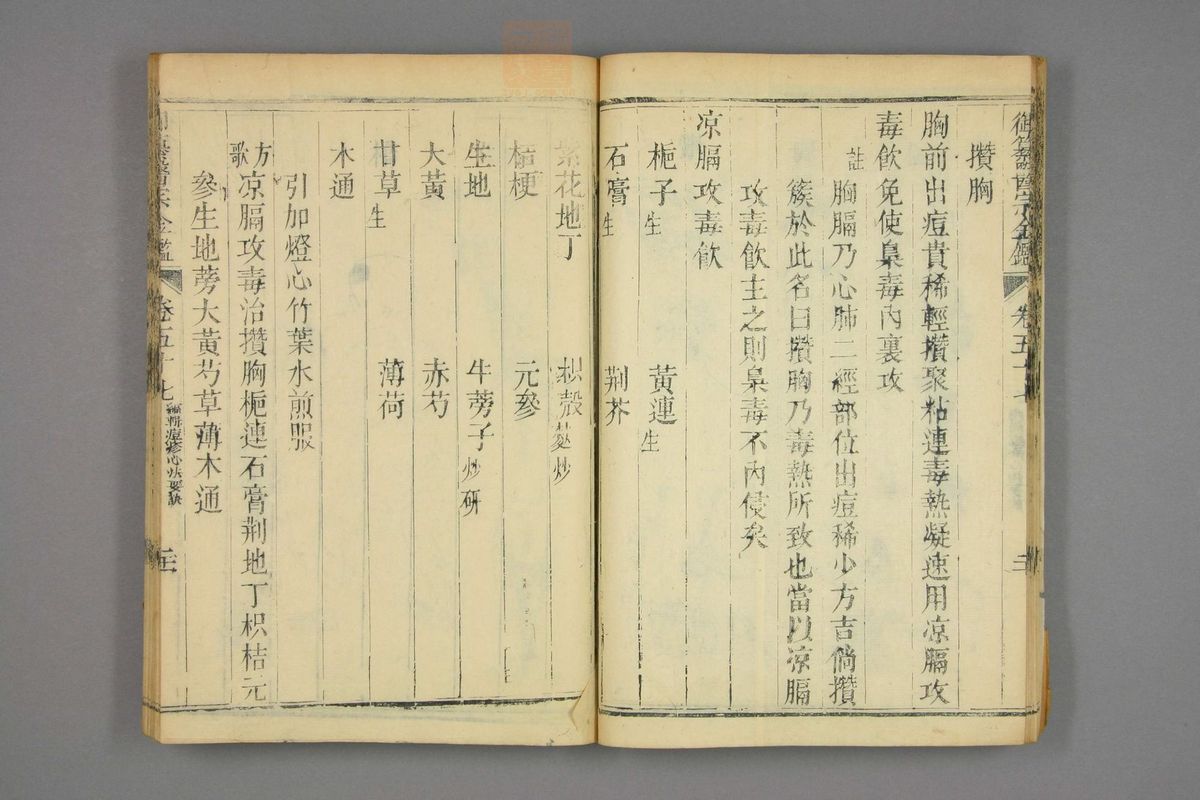 御纂醫宗金鑑 卷五十七
攢胸
胸前出痘貴稀輕攢聚粘連毒熱凝速用凉膈攻
毒飲免使梟毒內裏攻
註 胸膈乃心肺二經部位出痘稀少方吉倘攢
簇於此名曰攢胸乃毒熱所致也當以凉膈
攻毒飲主之則梟毒不內侵矣
凉膈攻毒飲
梔子生 黃連生
石膏生 荆芥
紫花地丁 枳殼麩炒
桔梗 元參
生地 牛蒡子炒研
大黃 赤芍
甘草生 薄荷
木通
引加燈心竹葉水煎服
方歌 凉膈攻毒治攢胸梔連石膏荆地丁枳桔元
參生地蒡大黃芍草薄木通
醫宗金鑑 卷五十七 編輯痘疹心法要訣